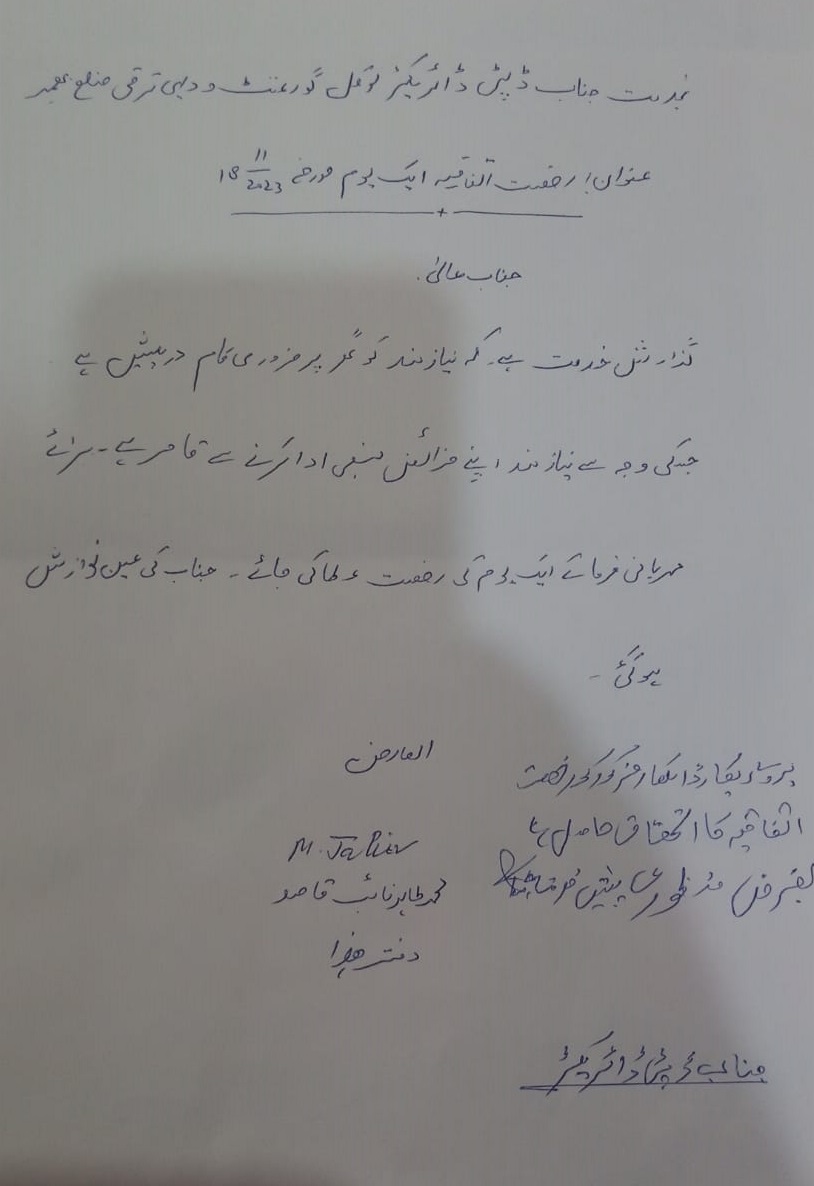 بخدمت جناب ڈپٹی ڈائریکٹر لوکل گورنمنٹ و دیہی ترقی ضلع بھمبر
عنوان: رخصت اتفاقیہ ایک یوم مورخہ 18 11/2023
جناب عالی.
گذارش خدمت ہے۔ کہ نیازمند کو گھر پر ضروری کام درپیش ہے
جسکی وجہ سے نیازمند اپنے فرائض منصبی ادا کرنے سے قاصر ہے۔ برائے
مہربانی فرماتے ایک یوم کی رخصت عطا کی جائے۔ جناب کی عین نوازش
ہوگئی۔
العارض
M. Tahir
محمد طاہر نائب قاصد
دفتر ہذا
بروئے ریکارڈ اہلکار مذکور کو رخصت
اتفاقیہ کا استحقاق حاصل ہے
بغرض منظوری پیش خدمت
جناب ڈپٹی ڈائریکٹر